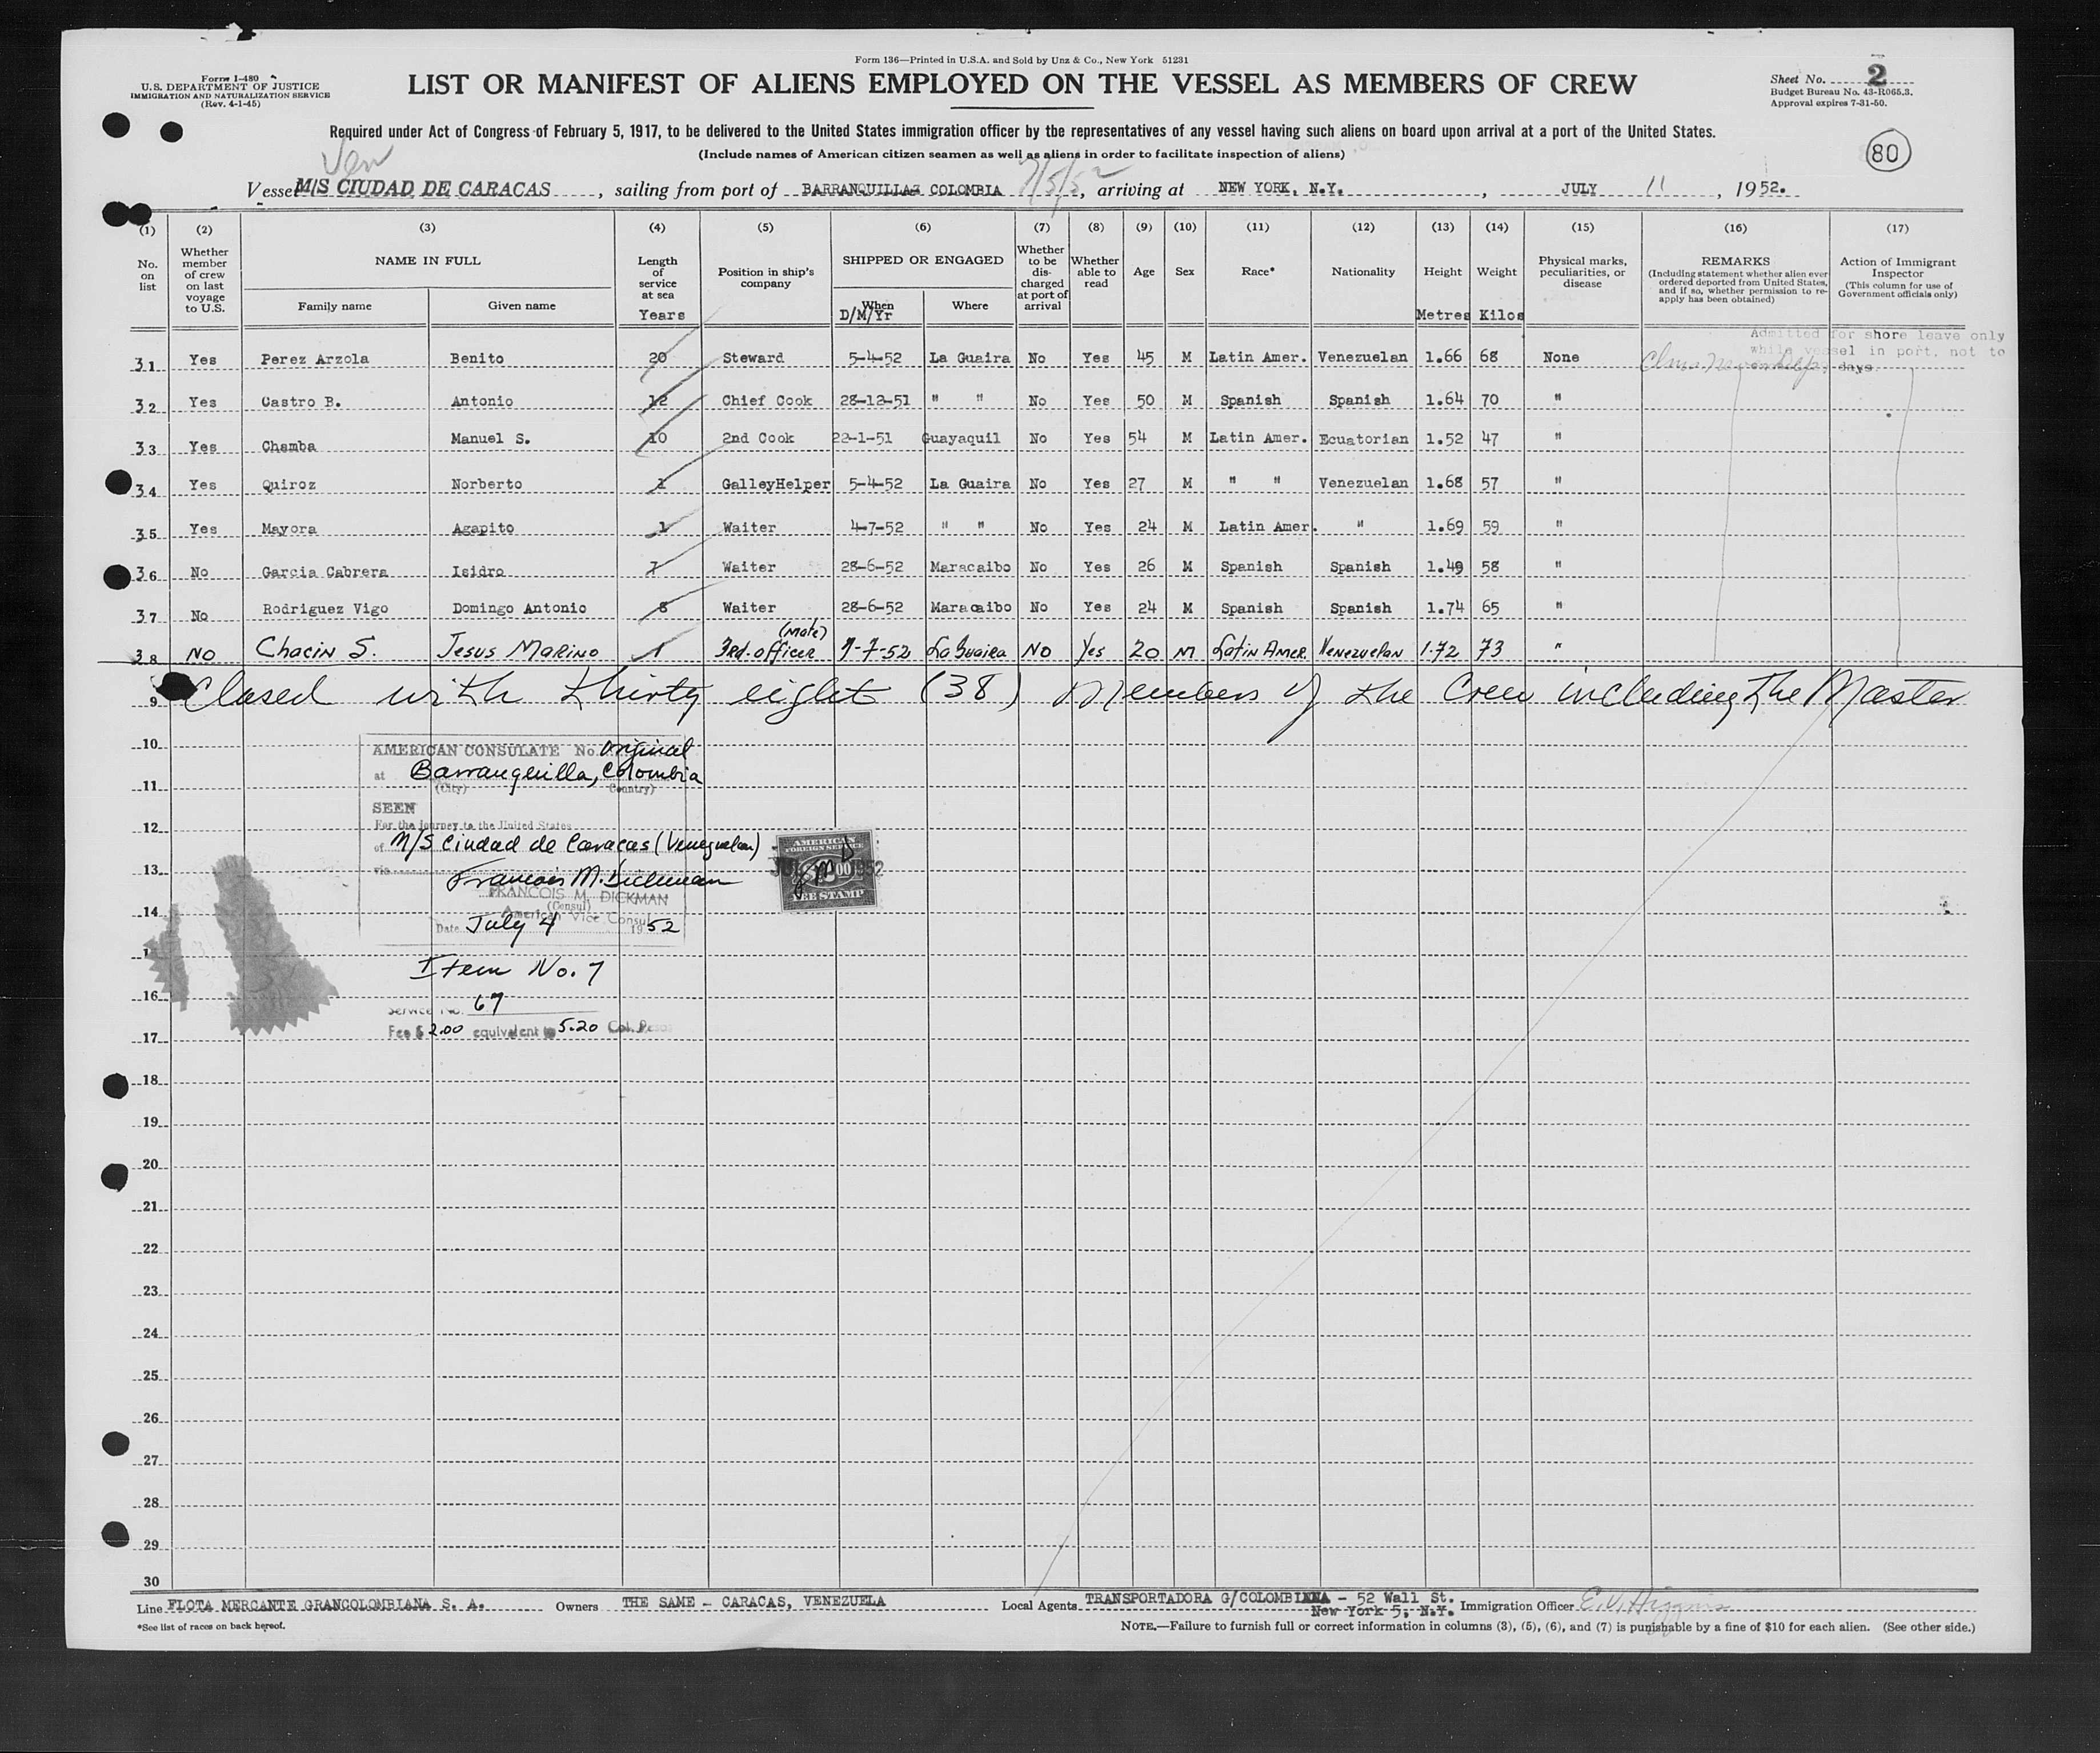 Form 136—Printed in U.S.A. and Sold by Unz & Co., New York 51231
Form I-480
U.S. DEPARTMENT OF JUSTICE
IMMIGRATION AND NATURALIZATION SERVICE
(Rev. 4-1-45)
LIST OR MANIFEST OF ALIENS EMPLOYED ON THE VESSEL AS MEMBERS OF CREW
Sheet No. 2
Budget Bureau No. 43-R065.3.
Approval expires 7-31-50.
Required under Act of Congress of February 5, 1917, to be delivered to the United States immigration officer by the representatives of any vessel having such aliens on board upon arrival at a port of the United States.
(Include names of American citizen seamen as well as aliens in order to facilitate inspection of aliens)
80
Ven
Vessel M/S CIUDAD DE CARACAS, sailing from port of BARRANQUILLA, COLOMBIA 7/5/52, arriving at NEW YORK, N.Y., JULY 11, 1952.
(1) (2) (3) (4) (5) (6) (7) (8) (9) (10) (11) (12) (13) (14) (15) (16) (17)
No. on list
Whether member of crew on last voyage to U.S.
NAME IN FULL
Family name Given name
Length of service at sea
Years
Position in ship's company
SHIPPED OR ENGAGED
When D/M/Yr Where
Whether to be discharged at port of arrival
Whether able to read
Age
Sex
Race*
Nationality
Height Metres
Weight Kilos
Physical marks, peculiarities, or disease
REMARKS
(Including statement whether alien ever ordered deported from United States, and if so, whether permission to re-apply has been obtained)
Action of Immigrant Inspector
(This column for use of Government officials only)
Admitted for shore leave only
while vessel in port. not to
days
31 Yes Perez Arzola Benito 20 Steward 5-4-52 La Guaira No Yes 45 M Latin Amer. Venezuelan 1.66 68 None
32 Yes Castro B. Antonio 12 Chief Cook 28-12-51 " " No Yes 50 M Spanish Spanish 1.64 70 "
33 Yes Chamba Manuel S. 10 2nd Cook 22-1-51 Guayaquil No Yes 54 M Latin Amer. Ecuatorian 1.52 47 "
34 Yes Quiroz Norberto 1 GalleyHelper 5-4-52 La Guaira No Yes 27 M " " Venezuelan 1.68 57 "
35 Yes Mayora Agapito 1 Waiter 4-7-52 " " No Yes 24 M Latin Amer. " 1.69 59 "
36 No Garcia Cabrera Isidro 7 Waiter 28-6-52 Maracaibo No Yes 26 M Spanish Spanish 1.49 58 "
37 No Rodriguez Vigo Domingo Antonio 8 Waiter 28-6-52 Maracaibo No Yes 24 M Spanish Spanish 1.74 65 "
38 NO Chacin S. Jesus Marino 1 3rd. officer (Mate) 7-7-52 La Guaira NO Yes 20 M Latin Amer. Venezuelan 1.72 73 "
9 Closed with thirty eight (38) members of the Crew including The Master
10
11
12
13
14
16
17
18
19
20
21
22
23
24
25
26
27
28
29
30
AMERICAN CONSULATE No. Original
at Barranquilla, Colombia
(City) (Country)
SEEN
For the journey to the United States
of M/S Ciudad de Caracas (Venezuelan)
via
Francois M. Dickman
FRANCOIS M. DICKMAN
(Consul)
American Vice Consul
Date July 4 1952
AMERICAN
FOREIGN SERVICE
FEE STAMP
Item No. 7
Service No. 67
Fee $ 2.00 equivalent to 5.20 Col. Pesos
Line FLOTA MERCANTE GRANCOLOMBIANA S. A. Owners THE SAME - CARACAS, VENEZUELA Local Agents TRANSPORTADORA G/COLOMBIANA - 52 Wall St. New York 5, N.Y. Immigration Officer E.V. Higgins
*See list of races on back hereof.
NOTE.—Failure to furnish full or correct information in columns (3), (5), (6), and (7) is punishable by a fine of $10 for each alien. (See other side.)